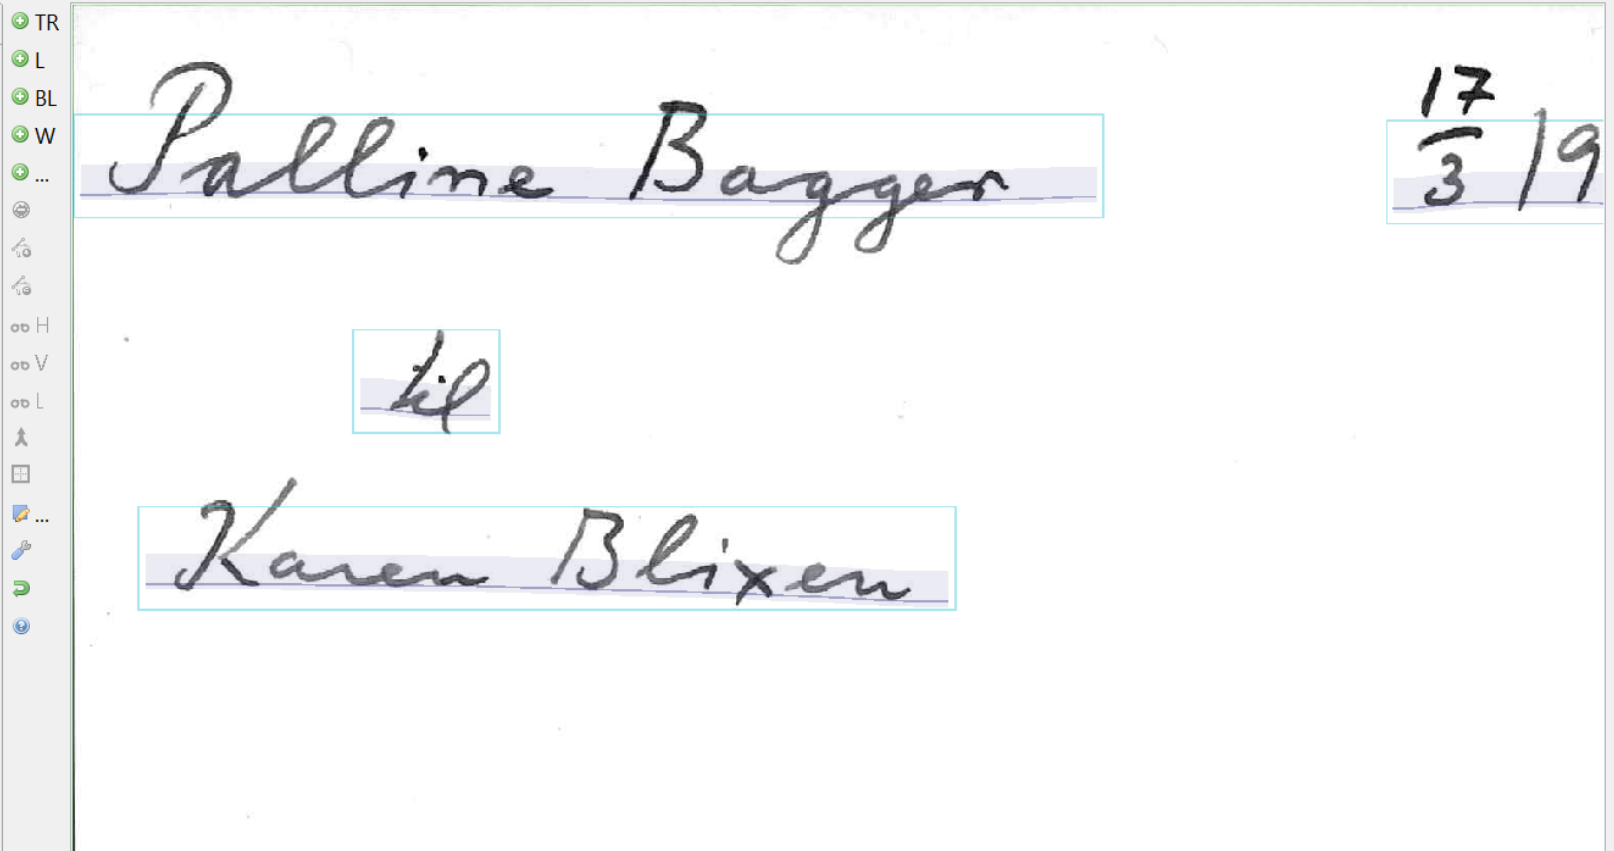 TR
L
BL
W
...
H
V
L
...
Palline Bagger
17/3 19
til
Karen Blixen